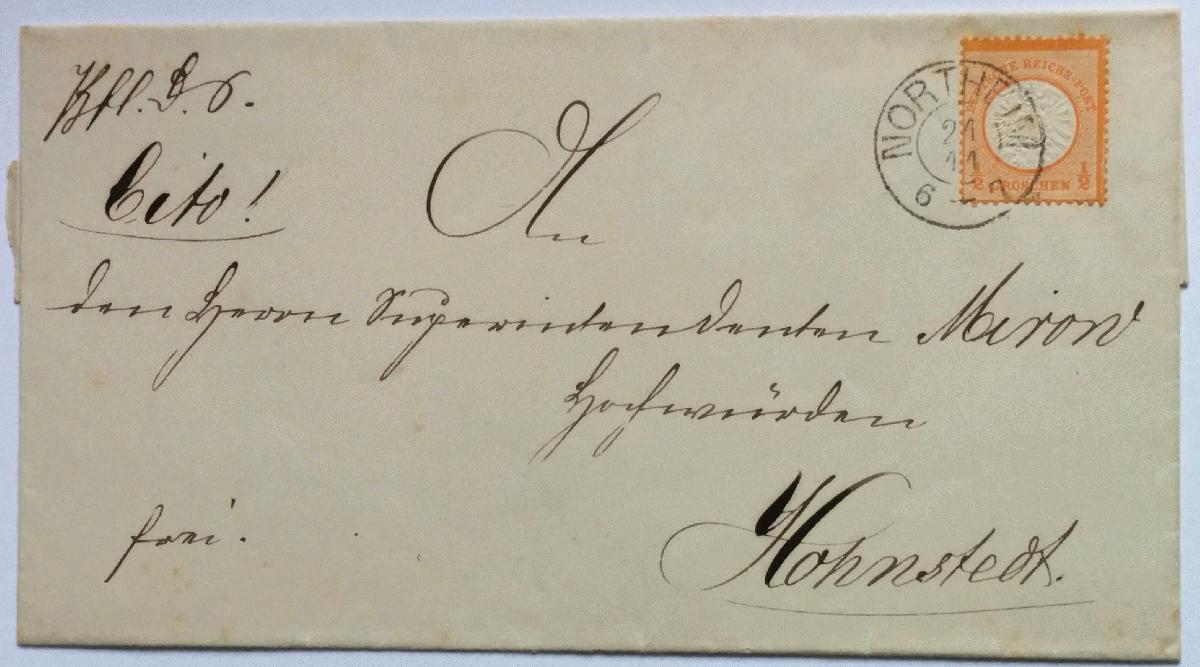 Cito!
An
den Herrn Superintendenten Mirow
Hochwürden
Hohnstedt.
frei.
NORTHEIM
21
11
6
REICHS-POST
½ GROSCHEN ½